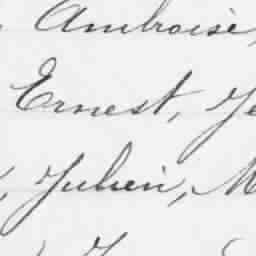 Ambroise,
Ernest,
, Julien,